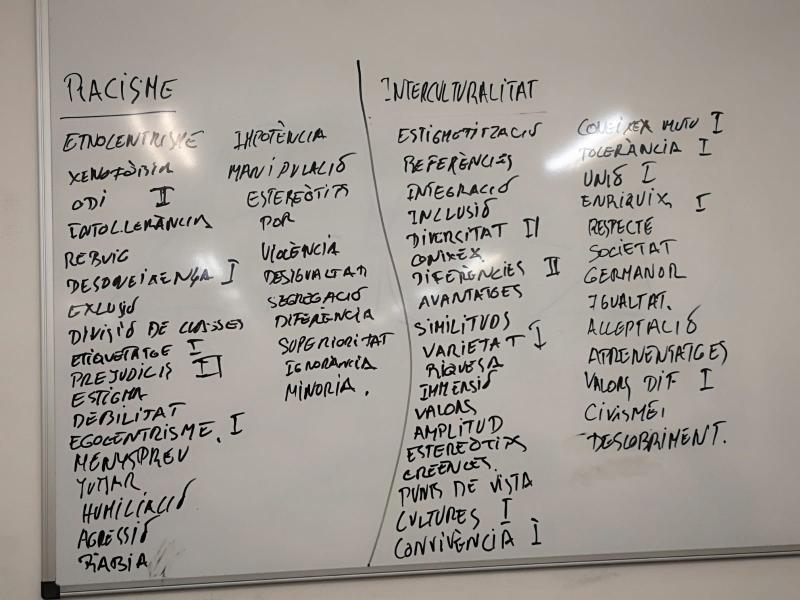 RACISME
ETNOCENTRISME
XENOFÒBIA
ODI II
INTOL·LERÀNCIA
REBUIG
DESCONEIXENÇA I
EXLUSIÓ
DIVISIÓ DE CLASSES
ETIQUETATGE I
PREJUDICIS III
ESTIGMA
DEBILITAT
EGOCENTRISME. I
MENYSPREU
HUMILIACIÓ
AGRESSIÓ
RÀBIA
IMPOTÈNCIA
MANIPULACIÓ
ESTEREÒTIPS
POR
VIOLÈNCIA
DESIGUALTAT
SEGREGACIÓ
DIFERÈNCIA
SUPERIORITAT
IGNORÀNCIA
MINORIA.
INTERCULTURALITAT
ESTIGMATITZACIÓ
REFERÈNCIES
INTEGRACIÓ
INCLUSIÓ
DIVERSITAT II
CONEIXER
DIFERÈNCIES II
AVANTATGES
SIMILITUDS
VARIETAT I
RIQUESA
IMMERSIÓ
VALORS
AMPLITUD
ESTEREÒTIPS
CREENCES.
PUNTS DE VISTA
CULTURES I
CONVIVÈNCIA I
CONEIXER MUTU I
TOLERÀNCIA I
UNIÓ I
ENRIQUIR I
RESPECTE
SOCIETAT
GERMANOR
IGUALTAT.
ACCEPTACIÓ
APRENENTATGES
VALORS DIF. I
CIVISME
DESCOBRIMENT.